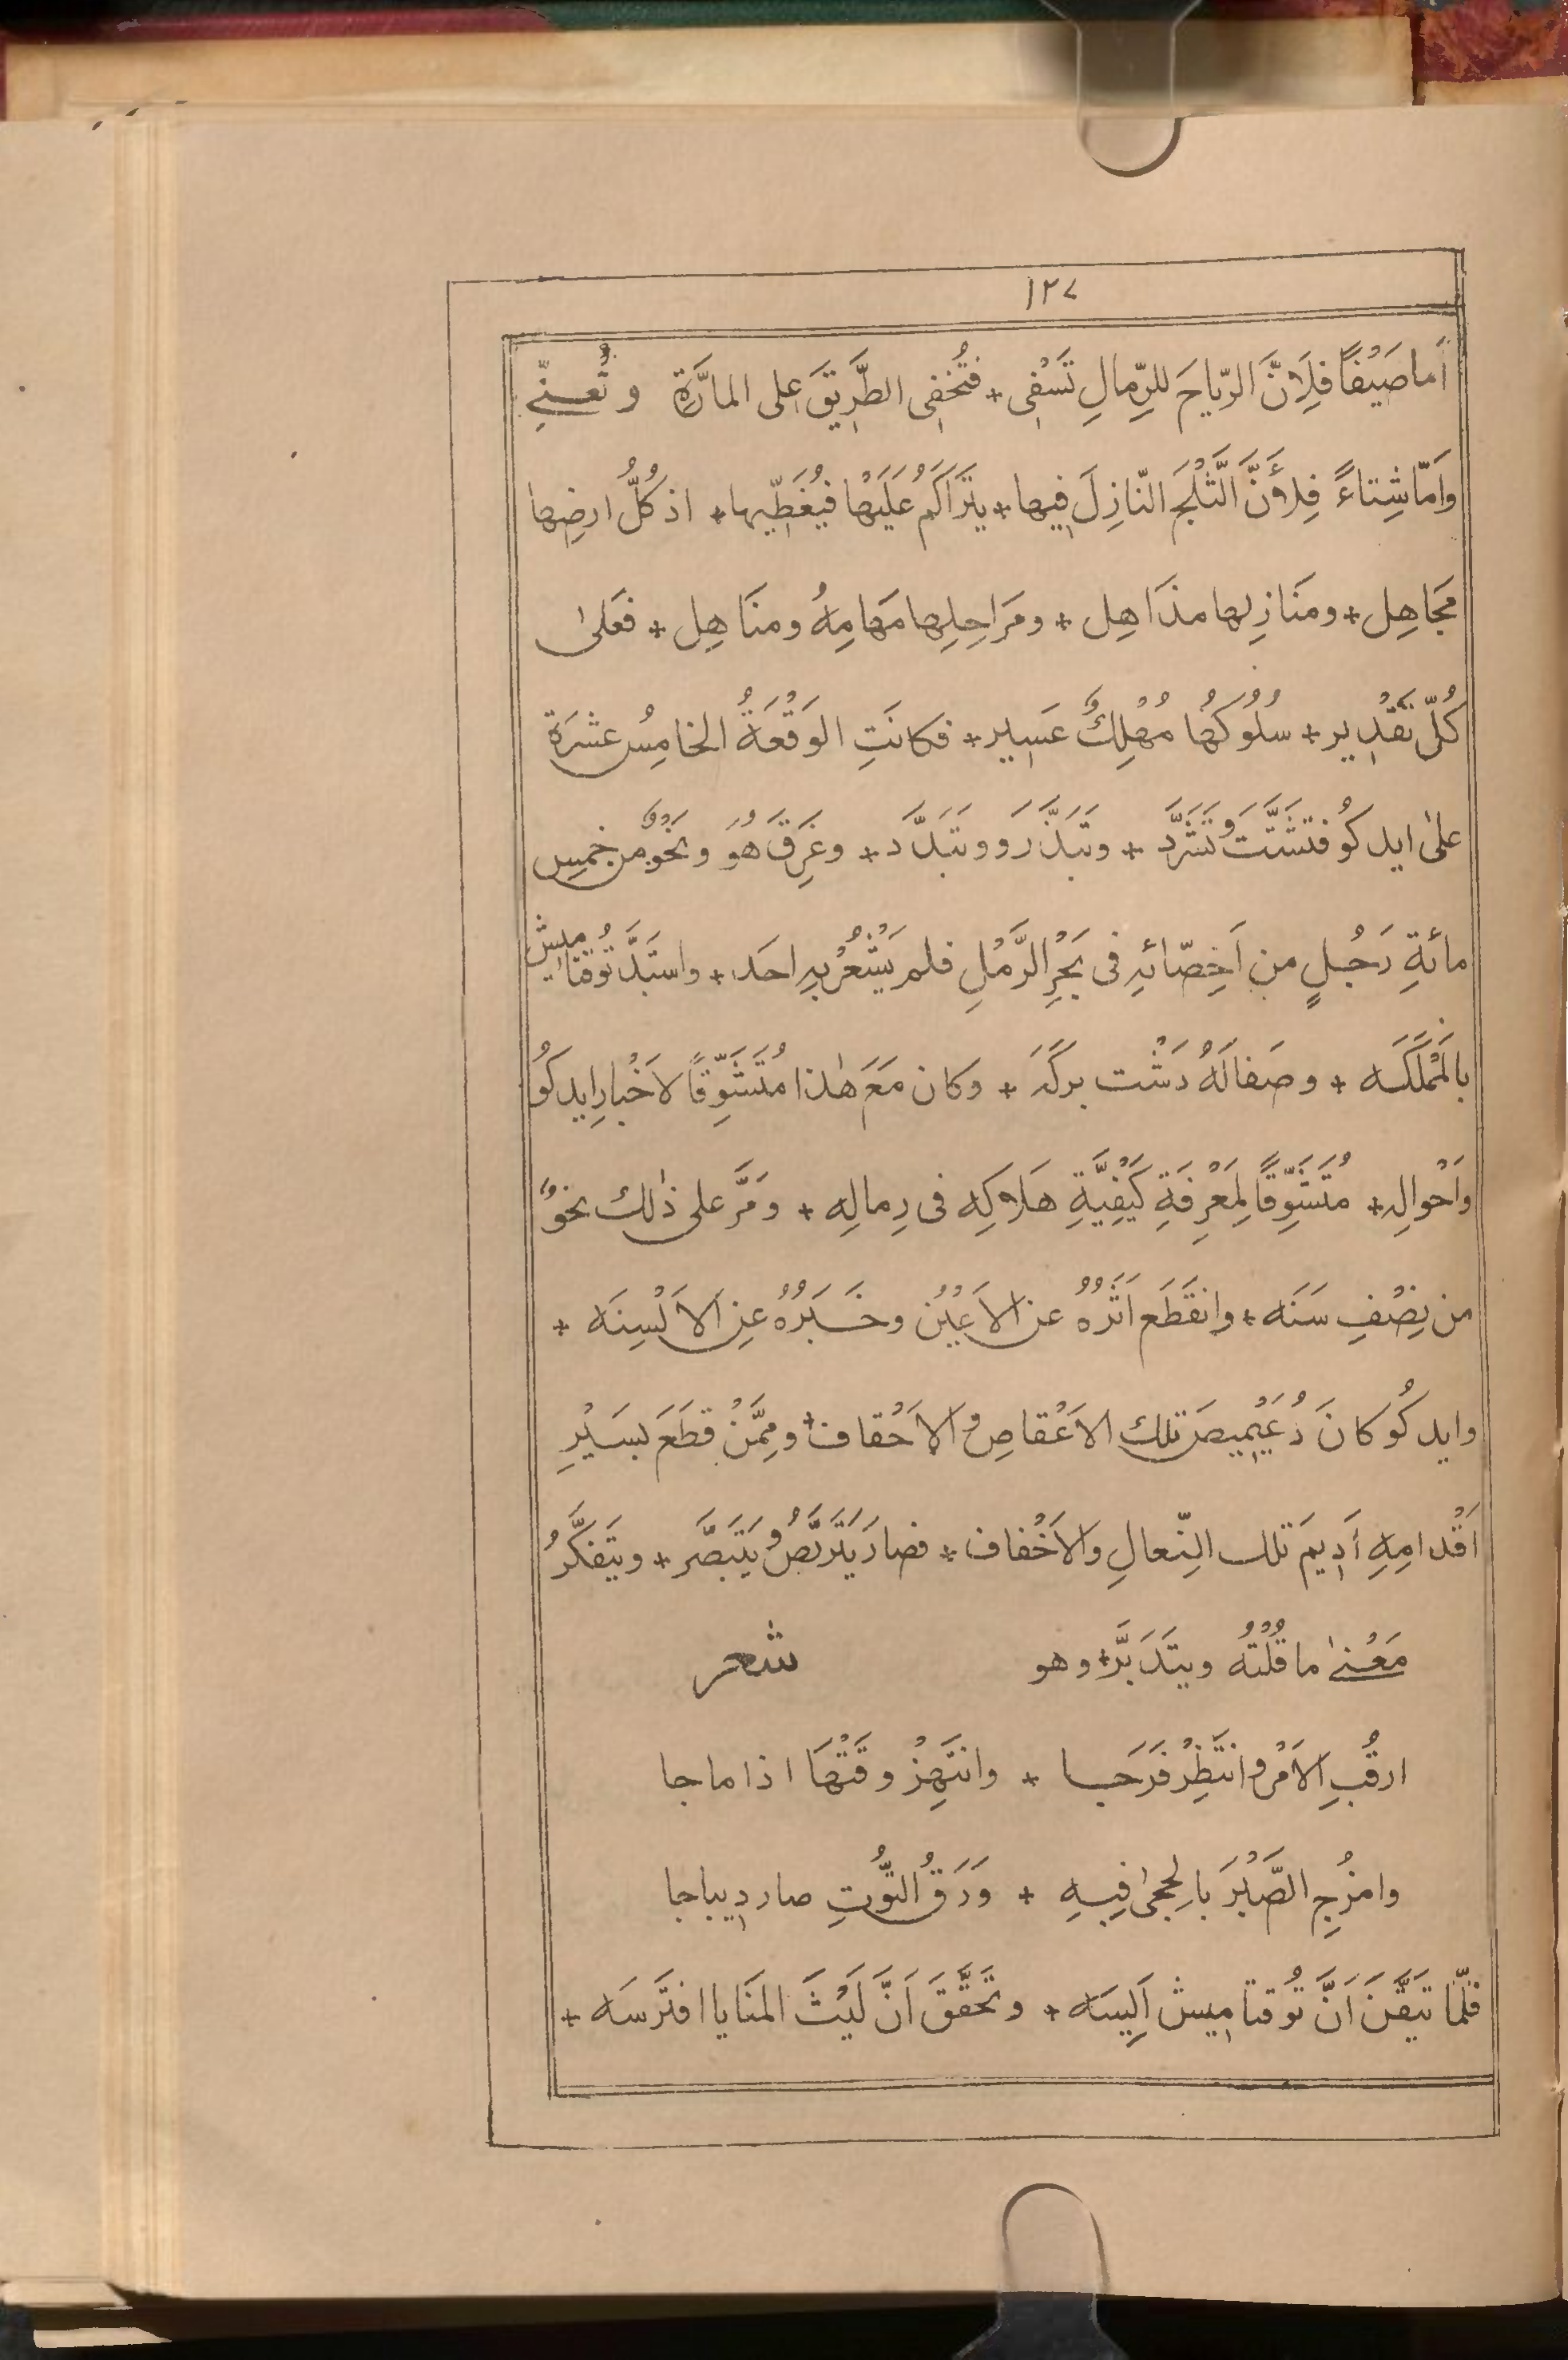 ١٢٧
اَما صَيْفًا فَلِاَنَّ الرّياحَ للرِّمالِ تَسْفِى + فَتُخْفِى الطَّرِيقَ عَلى المارَّةِ وتُعفِّى
واَمّا شِتاءً فِلأَنَّ الَّثَلْجَ النّازِلَ فِيها + يتَراكَمُ عَلَيْها فيُغَطِّيها + اذ كُلُّ ارضِها
مَجَاهِل + ومنَازِلها مذَاهِل + ومَراحِلِها مَهامِهُ ومنَاهِل + فعَلىٰ
كُلِّ تَقْدِير + سُلُوكُهُا مُهْلِكٌ عَسِير + فكانَتِ الوَقْعَةُ الخامِسُ عشرَة
علىٰ ايدكُو فتَشَتَّتَ وتَشَرَّد + وتَبَذَّرَ وتَبَدَّد + وغَرِقَ هُوَ ونَحْوٌ من خمسِ
مائةِ رَجُلٍ من اَخِصّائهِ فى بَحْرِ الرَّمْلِ فلم يَشْعُرْ بهِ احَد + واستَبَدَّ تُوقتامِيش
بالمَمْلَكَه + وصَفا لَهُ دَشْت بركَه + وكان مَعَ هٰذا مُتَشَوِّقًا لاَخْبارِ ايدكُو
واَحْوالِه + مُتَشَوِّقًا لِمَعْرِفَةِ كَيْفِيَّةِ هَلاكِه فى رِمالِه + ومَرَّ على ذٰلك نحوٌ
من نِصْفِ سَنَه + وانقَطَع اَثَرُهُ عن الاَعْيُن وخَبَرُهُ عنِ الاَلْسِنَه +
وايدكُو كانَ دُعَيْمِيصَ تلك الاَعْقاصِ والاَحْقاف + ومِمَّنْ قَطَعَ بسَيْرِ
اَقْدامِهِ أَدِيمَ تلك النِّعالِ والاَخْفاف + فصارَ يَتَربَّصُ ويَتَبصَّر + ويتَفكَّرُ
مَعْنىٰ ما قُلْتُهُ ويتَدَبَّر + وهو شعر
ارقُبِ الاَمْرَ وانتَظِرْ فَرَجا + وانتَهِزْ وقتَهُا اذا ما جا
وامزُجِ الصَّبْرَ بالحِجىٰ فِبِهِ + وَرَقُ التُّوتِ صار دِيباجا
فلَمّا تَيَقَّنَ اَنَّ تُوقتامِيش اَيِسَه + وتَحقَّقَ اَنَّ لَيْثَ المنَايا افتَرسَه +